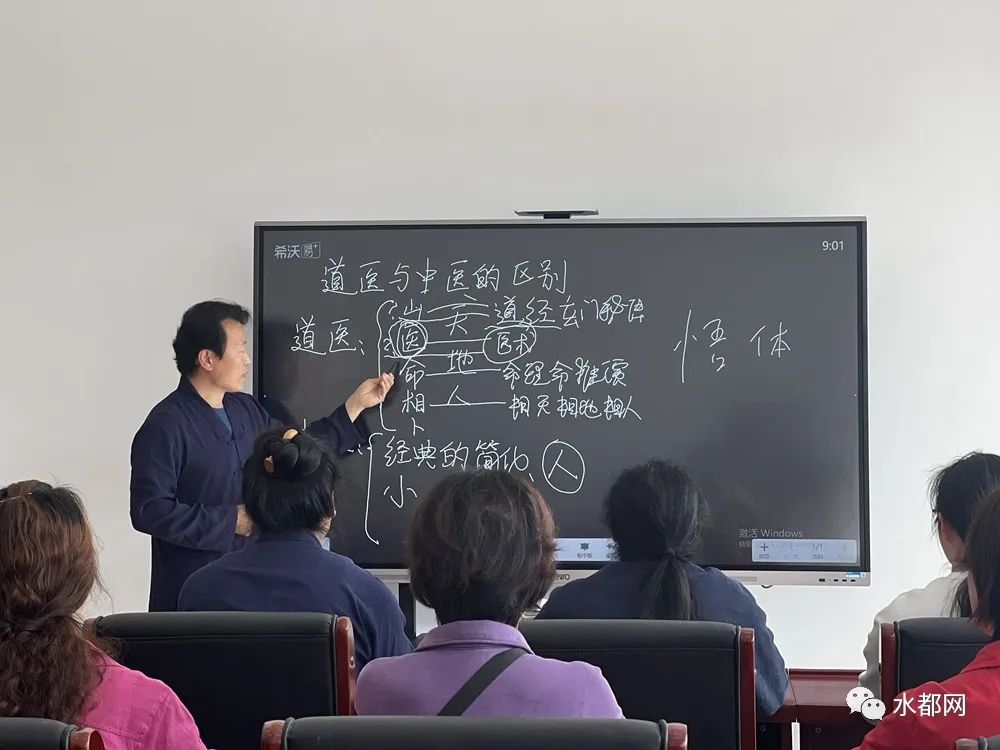 希沃易+
9:01
道医与中医的区别
道医:
山 天 道经玄门秘
医 医术
命 地 命理命推演
相 人 相天相地相人
卜
经典的简化、人
小
悟 体
激活 Windows
1/1
水都网